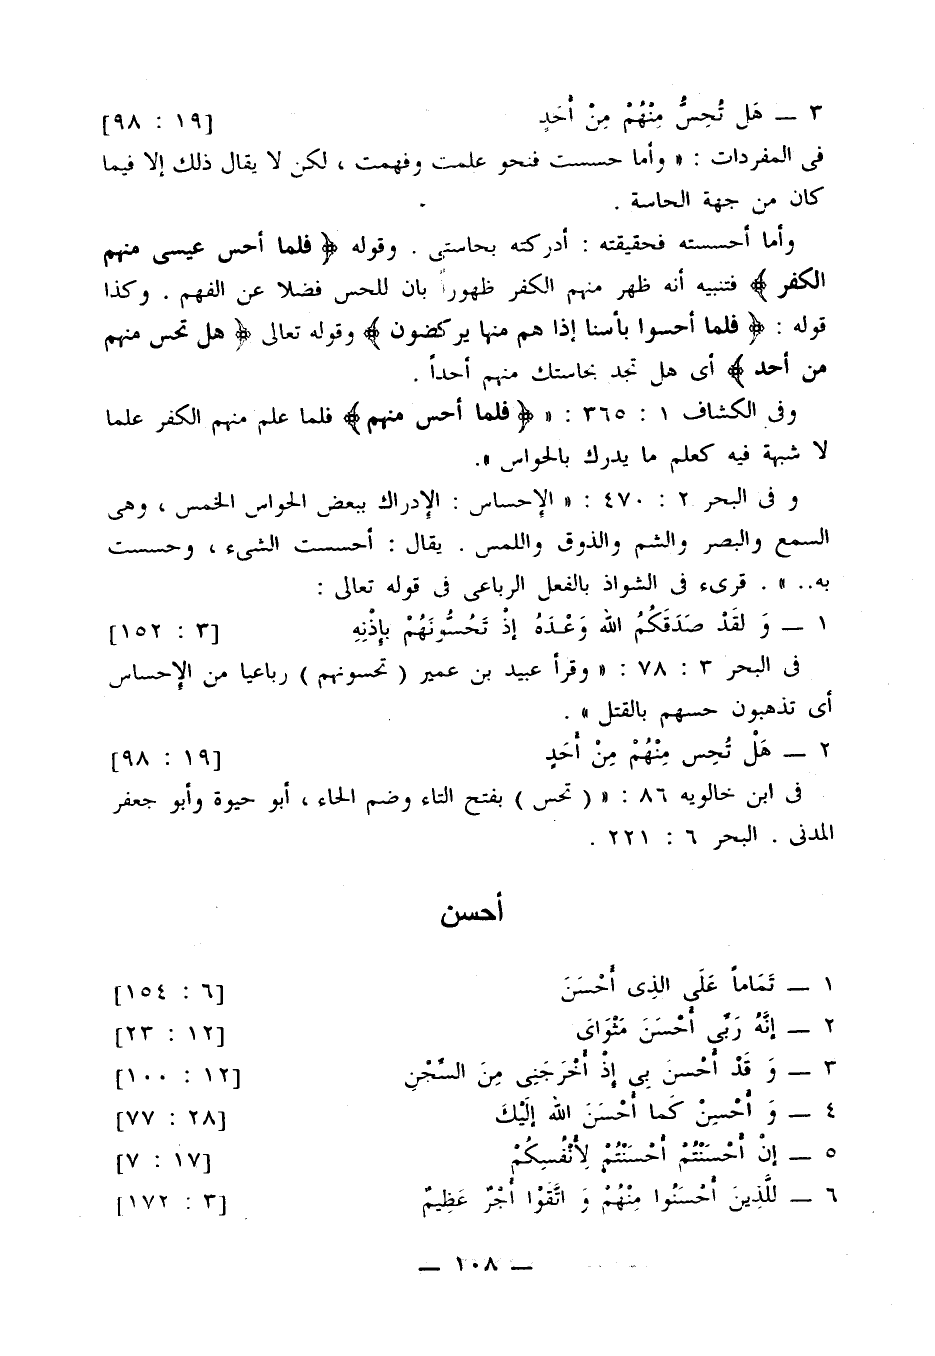 ٣ — هَل تُحِسُّ مِنْهُمْ مِنْ أَحَدٍ [١٩ : ٩٨]
فى المفردات : « وأما حسست فنحو علمت وفهمت ، لكن لا يقال ذلك إلا فيما
كان من جهة الحاسة .
وأما أحسسته فحقيقته : أدركته بحاستى . وقوله ﴿ فلما أحس عيسى منهم
الكفر ﴾ فتنبيه أنه ظهر منهم الكفر ظهوراً بان للحس فضلا عن الفهم . وكذا
قوله : ﴿ فلما أحسوا بأسنا إذا هم منها يركضون ﴾ وقوله تعالى ﴿ هل تحس منهم
من أحد ﴾ أى هل تجد بحاستك منهم أحداً .
وفى الكشاف ١ : ٣٦٥ : « ﴿ فلما أحس منهم ﴾ فلما علم منهم الكفر علما
لا شبهة فيه كعلم ما يدرك بالحواس ».
و فى البحر ٢ : ٤٧٠ : « الإحساس : الإدراك ببعض الحواس الخمس ، وهى
السمع والبصر والشم والذوق واللمس . يقال : أحسست الشىء ، وحسست
به.. » . قرىء فى الشواذ بالفعل الرباعى فى قوله تعالى :
١ — وَ لقَدْ صَدَقَكُمُ الله وَعْدَهُ إذْ تَحُسُّونَهُمْ بإِذْنِهِ [٣ : ١٥٢]
فى البحر ٣ : ٧٨ : « وقرأ عبيد بن عمير ( تحسونهم ) رباعيا من الإحساس
أى تذهبون حسهم بالقتل » .
٢ — هَلْ تُحِس مِنْهُمْ مِنْ أَحَدٍ [١٩ : ٩٨]
فى ابن خالويه ٨٦ : « ( تحس ) بفتح التاء وضم الحاء ، أبو حيوة وأبو جعفر
المدنى . البحر ٦ : ٢٢١ .
أحسن
١ — تَمَاماً عَلَى الذِى أَحْسَنَ [٦ : ١٥٤]
٢ — إنَّهُ رَبِّى أَحْسَنَ مَثْوَاىَ [١٢ : ٢٣]
٣ — وَ قَدْ أَحْسنَ بِى إذْ أَخْرَجَنِى مِنَ السِّجْنِ [١٢ : ١٠٠]
٤ — وَ أَحْسِنْ كَما أَحْسَنَ الله إلَيْكَ [٢٨ : ٧٧]
٥ — إنْ أَحْسَنْتُمْ أَحْسَنْتُمْ لِأَنْفُسِكُمْ [١٧ : ٧]
٦ — للَّذِينَ أَحْسَنُوا مِنْهُمْ وَ اتَّقَوْا أَجْرٌ عَظِيمٌ [٣ : ١٧٢]
— ١٠٨ —